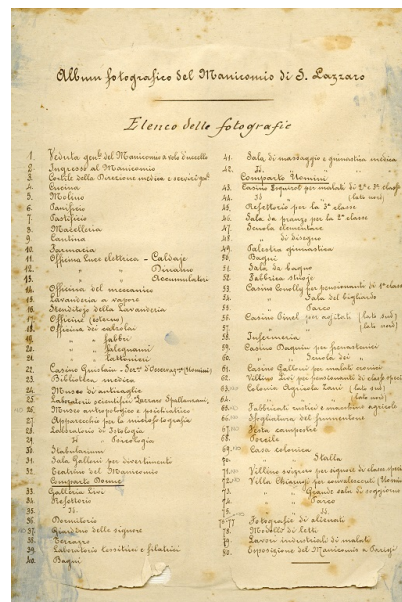 Album fotografico del Manicomio di S. Lazzaro
Elenco delle fotografie
1. Veduta gen.le del Manicomio a volo d'uccello
2. Ingresso al Manicomio
3. Cortile della Direzione medica e servizi gen.li
4. Cucina
5. Molino
6. Panificio
7. Pastificio
8. Macelleria
9. Cantina
10. Farmacia
11. Officina Luce elettrica - Caldaje
12. " " " Dinamo
13. " " " Accumulatori
14. Officina del meccanico
15. Lavanderia a vapore
16. Stenditojo della Lavanderia
17. Officine (esterno)
18. Officina dei calzolai
19. " " fabbri
20. " " falegnami
21. " " lattonieri
22. Casino Guislain - (Uomini)
23. Biblioteca medica
24. Museo di anticaglie
25. Laboratorii scientifici Lazzaro Spallanzani,
26. Museo antropologico e psichiatrico
27. Apparecchio per la microfotografia
28. Laboratorio di Istologia
29. Id. " Psicologia
30. Stabularium
31. Sala Galloni per divertimento
32. Teatrino del Manicomio
Comparto Donne
33. Galleria Livi
34. Refettorio
35. Id.
36. Dormitorio
37. Giardino delle signore
38. Terrazzo
39. Laboratorio tessitrici e filatrici
40. Bagni
41. Sala di massaggio e ginnastica medica
42. Id. " " " "
Comparto Uomini
43. Casino Esquirol per malati di 2.a e 3.a classe
44. Id. " " (lato nord)
45. Refettorio per la 3.a classe
46. Sala da pranzo per la 2.a classe
47. Scuola elementare
48. " di disegno
49. Palestra ginnastica
50. Bagni
51. Sala da bagno
52. Fabbrica stuoje
53. Casino Conolly per pensionanti di 1.a classe
54. " " Sala del bigliardo
55. " " Parco
56. Casino Pinel per agitati (lato sud)
57. " " " (lato nord)
58. Infermeria
59. Casino Daquin per frenastenici
60. " " Scuola dei "
61. Casino Galloni per malati cronici
62. Villino Livi per pensionanti di classe speciale
63. Colonia Agricola Zani (lato sud)
64. " " " (lato nord)
65. Fabbricati rustici e macchine agricole
66. Sfogliatura del frumentone
67. Festa campestre
68. Porcile
69. Casa colonica
70. " Stalla
71. Villino svizzero per signori di classe speciale
72. Villa Chiarugi per convalescenti (Uomini)
73. " " Grande sala di soggiorno
74. " " Parco
75. " " Id.
76-77 Fotografie di alienati
78. Modello di letti
79. Lavori industriali di malati
80. Esposizione del Manicomio a Parigi